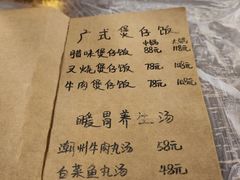 广式煲仔饭
中锅 大锅
腊味煲仔饭 88元 118元
叉烧煲仔饭 78元 108元
牛肉煲仔饭 78元 108元
暖胃养生汤
潮州牛肉丸汤 58元
白菜鱼丸汤 48元